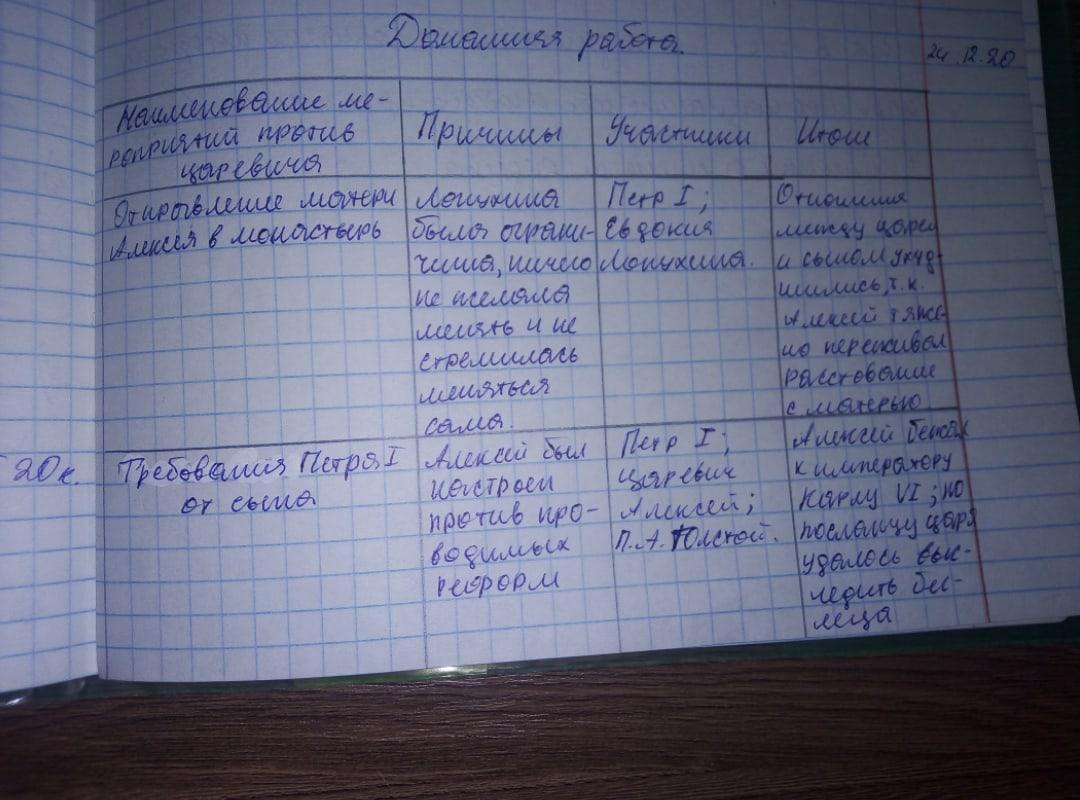 Домашняя работа.
24.12.20
Наименование ме-
роприятий против
царевича
Причины
Участники
Итоги
Отправление матери
Алексея в монастырь
Лопухина
была ограни-
чена, ничего
не желала
менять и не
стремилась
меняться
сама.
Петр I;
Евдокия
Лопухина.
Отношения
между царем
и сыном ухуд-
шились, т.к.
Алексей тяже-
ло переживал
расставание
с матерью
20 к.
Требования Петра I
от сына
Алексей был
настроен
против про-
водимых
реформ
Петр I;
царевич
Алексей;
П.А. Толстой.
Алексей бежал
к императору
Карлу VI; но
посланцу царя
удалось выс-
ледить бег-
леца